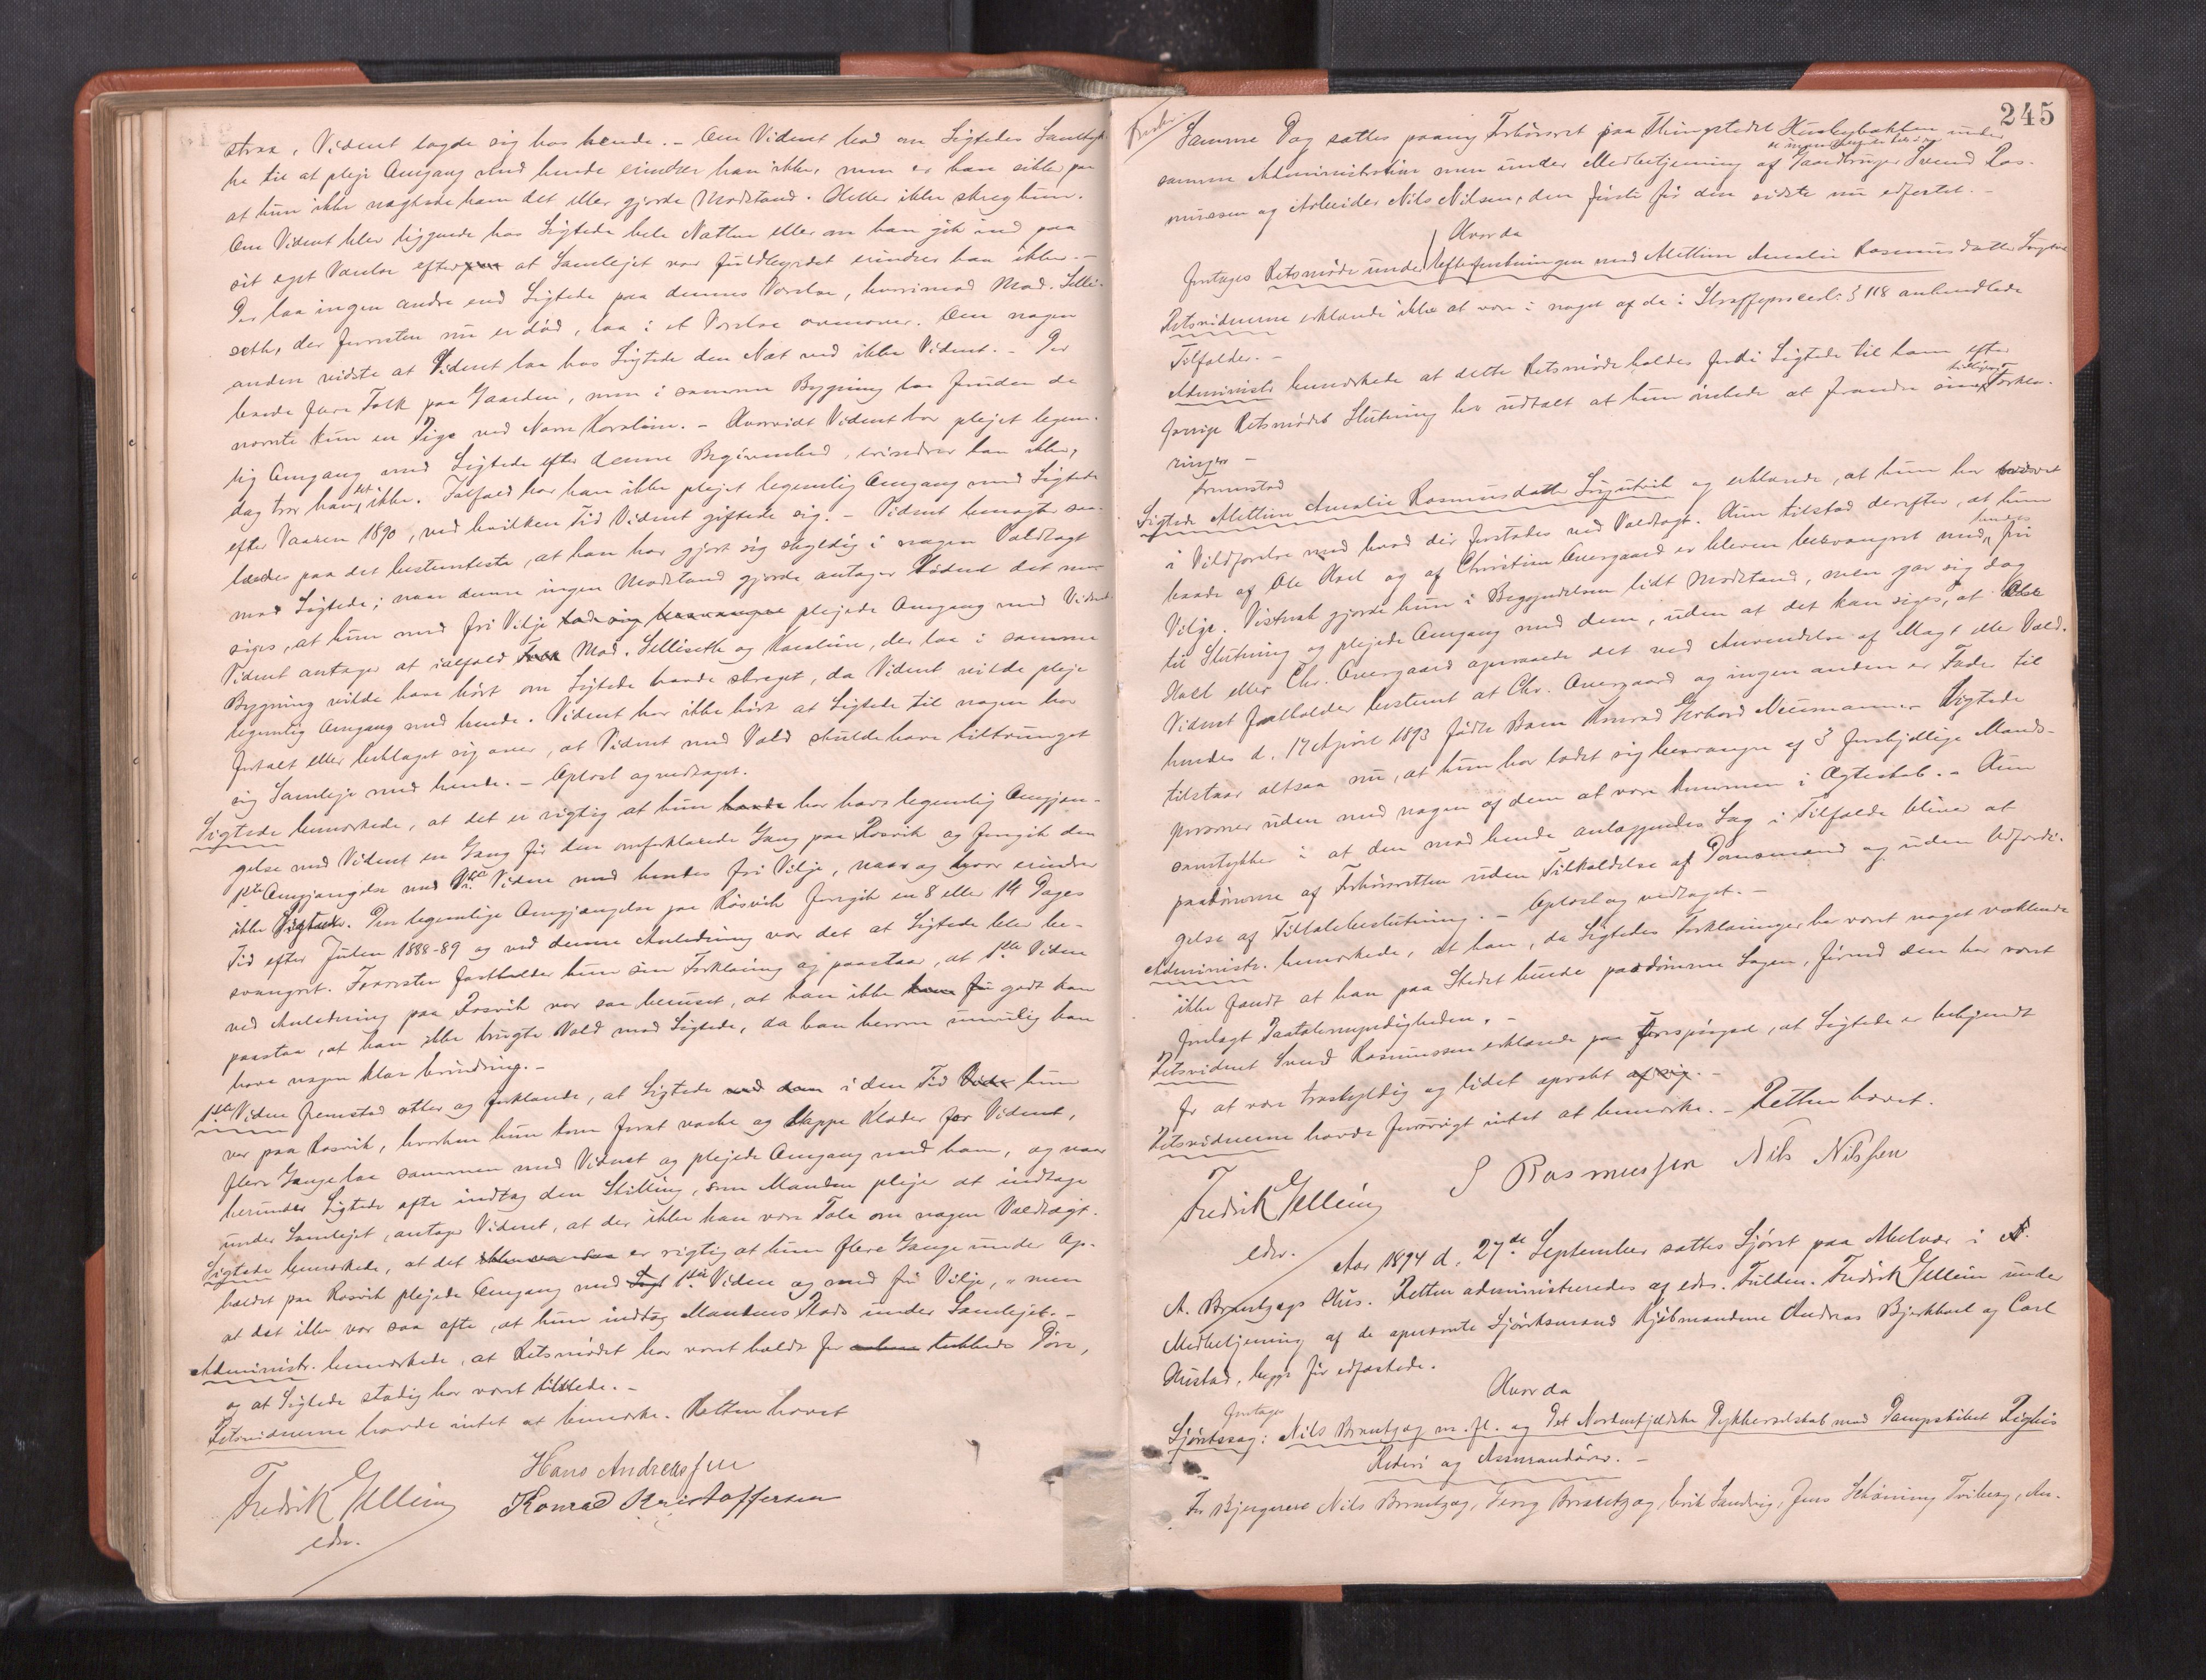 strax, Vidnet lagde sig hos hende. – Om Vidnet bad om Sigtedes Samtyk-
ke til at pleje Omgang med hende erindrer han ikke, men er han sikker paa
at hun ikke nægtede ham det eller gjorde Modstand. Heller ikke skreg hun.
Om Vidnet blev liggende hos Sigtede hele Natten eller om han gik ind paa
sit eget Værelse efter at Samlejet var fuldbyrdet erindrer han ikke. –
Der laa ingen andre end Sigtede paa dennes Værelse, hvorimod Mad. Selli-
seth, der forresten nu er død, laa i et Værelse ovenover. Om nogen
anden vidste at Vidnet laa hos Sigtede den Nat ved ikke Vidnet. – Der
boede flere Folk paa Gaarden, men i samme Bygning laa foruden de
nævnte kun en Pige ved Navn Karoline. – Hvorvidt Vidnet har plejet legem-
lig Omgang med Sigtede efter denne Begivenhed, erindrer han ikke,
dog tror han det ikke. Ialfald har han ikke plejet legemlig Omgang med Sigtede
efter Vaaren 1890, ved hvilken Tid Vidnet giftede sig. – Vidnet benægter saa-
ledes paa det bestemteste, at han har gjort sig skyldig i nogen Voldtægt
mod Sigtede; naar denne ingen Modstand gjorde antager Vidnet det maa
siges, at hun med fri Vilje lod sig besvangre plejede Omgang med Vidnet.
Vidnet antager at ialfald Mad. Selliseth og Karoline, der laa i samme
Bygning vilde have hørt om Sigtede havde skreget, da Vidnet vilde pleje
legemlig Omgang med hende. Vidnet har ikke hørt at Sigtede til nogen har
fortalt eller beklaget sig over, at Vidnet med Vold skulde have tiltvunget
sig Samleje med hende. – Oplæst og vedtaget.
Sigtede bemærkede, at det er rigtig at hun havde har havt legemlig Omgjæn-
gelse med Vidnet en Gang før den omforklarede Gang paa Røsvik og foregik den
1ste Omgjængelse med 1ste Vidne med hendes fri Vilje, naar og hvor erindrer
ikke Sigtede. Den legemlige Omgjængelse paa Røsvik foregik en 8 eller 14 Dages
Tid efter Julen 1888-89 og ved denne Anledning var det at Sigtede blev be-
svangret. Forresten fastholder hun sin Forklaring og paastaar, at 1ste Vidne
ved Anledning paa Røsvik var saa beruset, at han ikke godt kan
paastaa, at han ikke brugte Vold mod Sigtede, da han herom umulig kan
have nogen klar Erindring. –
1ste Vidne fremstod atter og forklarede, at Sigtede i den Tid hun
var paa Røsvik, hvorhen hun kom forat vaske og lappe Klæder for Vidnet,
flere Gange laa sammen med Vidnet og plejede Omgang med ham, og naar
herunder Sigtede ofte indtog den Stilling, som Manden plejer at indtage
under Samlejet, antager Vidnet, at der ikke kan være Tale om nogen Voldtægt.
Sigtede bemærkede, at det er rigtig at hun flere Gange under Op-
holdet paa Røsvik plejede Omgang med 1ste Vidne og med fri Vilje, men
at det ikke var saa ofte, at hun indtog Mandens Plads under Samlejet. –
Administr. bemærkede, at Retsmødet har været holdt for lukkede Døre,
og at Sigtede stadig har været tilstede. –
Retsvidnerne havde intet at bemærke. Retten hævet
Fredrik Jelleim
edsv.
Hans Andreassen
Konrad Kristoffersen
245
Samme Dag sattes paany Forhørsret paa Thingstedet Husbybakken under
samme Administration men under Medbetjening af Gaardbruger Svend Ras-
mussen og Arbeider Nils Nilsen, den første før den sidste nu edfæstet. –
Hvorda
foretages Retsmøde under Efterforskningen mod Mettine Amalie Rasmusdatter
Retsvidnerne erklærede ikke at være i noget af de i Straffeprocesl. § 118 omhandlede
Tilfælder. –
Administr bemærkede at dette Retsmøde holdes fordi Sigtede til ham efter
forrige Retsmødes Slutning har udtalt at hun ønskede at forandre sine tidligere Forkla-
ringer –
fremstod
Sigtede Mettine Amalie Rasmusdatter og erklærede, at hun har været
i Vildfarelse med hvad der forstodes ved Voldtægt. Hun tilstod derefter, at hun
baade af Ole Hoel og af Christian Overgaard er bleven besvangret med hendes fri
Vilje. Vistnok gjorde hun i Begyndelsen lidt Modstand, men gav sig dog
til Slutning og plejede Omgang med dem, uden at det kan siges, at Ole
Hoel eller Chr. Overgaard opnaaede det ved Anvendelse af Magt eller Vold.
Vidnet fastholder bestemt at Chr. Overgaard og ingen anden er Fader til
hendes d. 17 April 1893 fødte Barn Konrad Gerhard Neumann. – Sigtede
tilstaar altsaa nu, at hun har ladet sig besvangre af 3 forskjellige Mands-
personer uden med nogen af dem at være kommen i Ægteskab. – Hun
samtykker i at den mod hende anlæggendes Sag i Tilfælde bliver at
paadømme af Forhørsretten uden Tilkaldelse af Domsmænd og uden Udfærdi-
gelse af Tiltalebeslutning. – Oplæst og vedtaget. –
Administr. bemærkede, at han, da Sigtedes Forklaringer har været noget vaklende
ikke fandt at han paa Stedet burde paadømme Sagen, førend den har været
forelagt Paatalemyndigheden. –
Retsvidnet Svend Rasmussen erklærede paa Forespørgsel, at Sigtede er bekjendt
for at være troskyldig og lidet oprakt af sig. –
Retsvidnerne havde forøvrigt intet at bemærke. – Retten hævet.
Fredrik Jelleim
edsv.
S Rasmussen Nils Nilssen
Aar 1894 d. 27de September sattes Sjøret paa Melvær i
A. Brandtzægs Hus. Retten administreredes af edsv. Fuldm. Fredrik Jelleim under
Medbetjening af de opnævnte Sjøretsmænd Kjøbmændene Andreas Bjerkhoel og Carl
Hustad, begge før edfæstede.
Hvorda
foretages
Sjøretssag: Nils Brandtzæg m. fl. og Det Nordenfjeldske Dykkerselskab mod Dampskibet
Rederi og Assurandører. –
For Bjergerne Nils Brandtzæg, Georg Brandtzæg, Erik Sandvig, Jens Schøning Friberg, An-